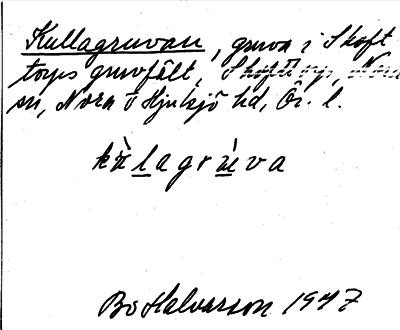 Kullagruvan, gruva i Skoft
torps gruvfält, Skoftorp, Nora
sn, Nora o Hjulsjö hd, Ör. l.
kùlagrúva
Bo Halvarson 1947